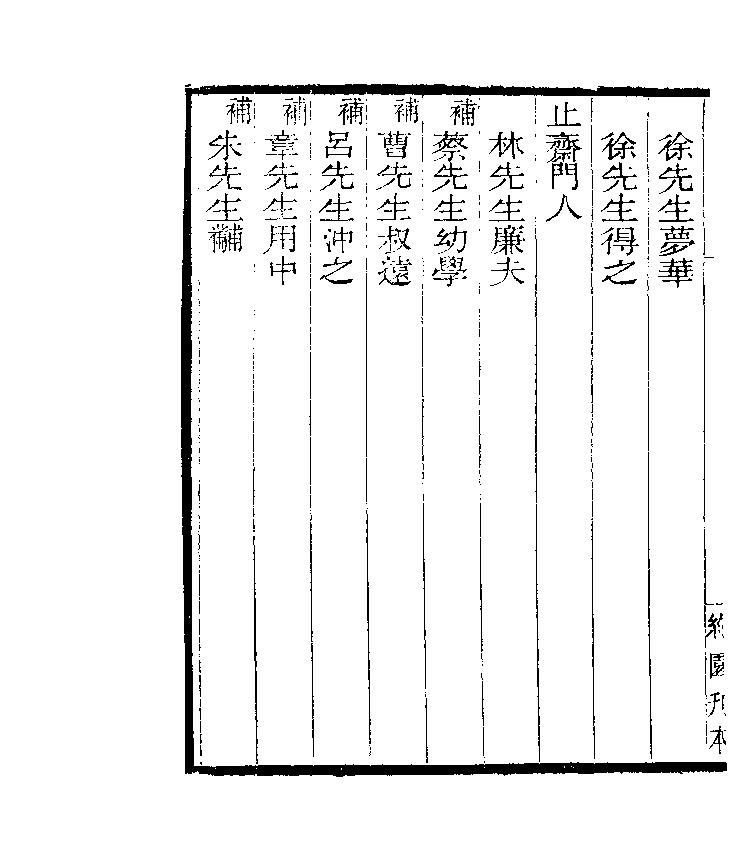 約園刊本
徐先生夢華
徐先生得之
止齋門人
林先生廉夫
補蔡先生幼學
補曹先生叔遠
補呂先生沖之
補章先生用中
補朱先生黼